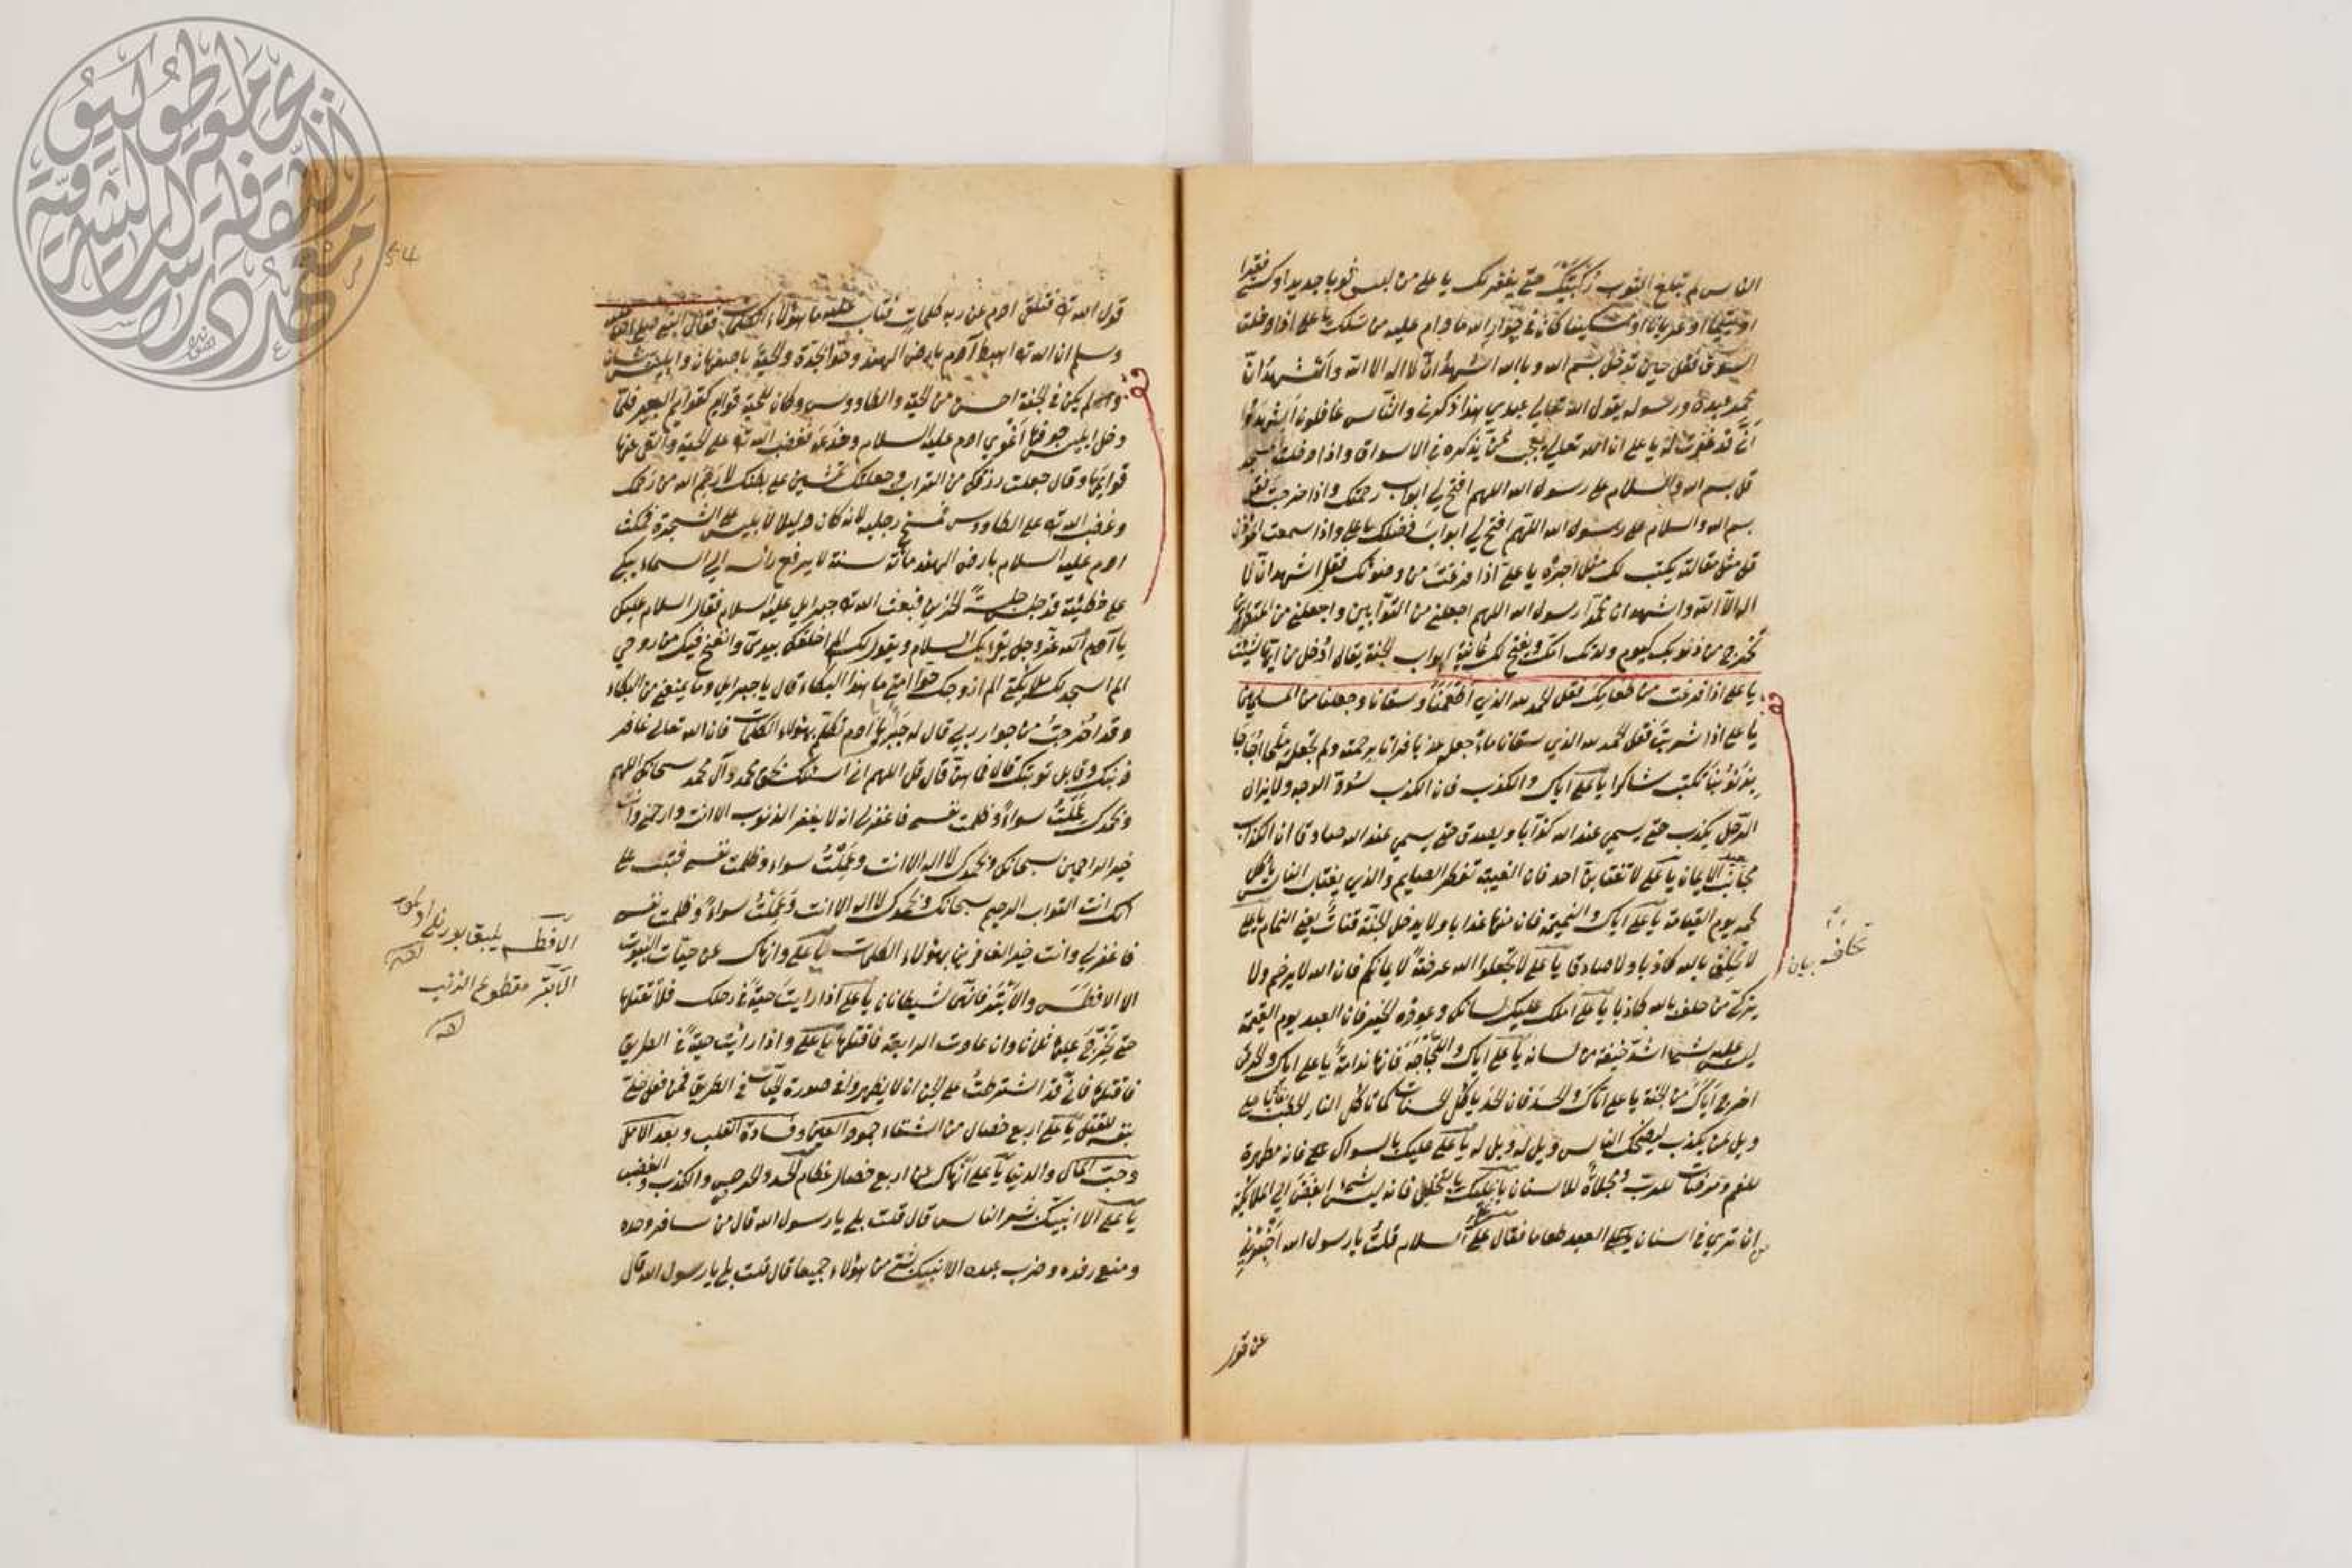 الناس لم تبلغ الثوب ركبتيك حتى يغفر لك يا علي من لبس ثوبا جديدا وكسى فقيرا
او يتيما او عريانا او مسكينا كان في جوار الله ما دام عليه من سلك يا علي اذا دخلت
السوق فقل حين تدخل بسم الله وبالله اشهد ان لا اله الا الله واشهد ان
محمد عبده ورسوله يقول الله تعالى عبدي هذا ذكرني والناس غافلون اشهدوا
اني قد غفرت له يا علي ان الله تعالى يعجب ممن يذكره في الاسواق واذا دخلت مسجد
قل بسم الله والسلام على رسول الله اللهم افتح لي ابواب رحمتك واذا خرجت فقل
بسم الله والسلام على رسول الله اللهم افتح لي ابواب فضلك يا علي واذا سمعت المؤذن
قل مثل مقالته يكتب لك مثل اجره يا علي اذا فرغت من وضوئك فقل اشهد ان لا
اله الا الله واشهد ان محمدا رسول الله اللهم اجعلني من التوابين واجعلني من المتطهرين
تخرج من ذنوبك كيوم ولدتك امك ويفتح لك ثمانية ابواب الجنة يقال ادخل من ايها شئت
يا علي اذا فرغت من طعامك فقل الحمد لله الذي اطعمنا وسقانا وجعلنا من المسلمين
يا علي اذا شربت فقل الحمد لله الذي سقانا ماء جعله عذبا فراتا برحمته ولم يجعله ملحا اجاجا
بذنوبنا تكتب شاكرا يا علي اياك والكذب فان الكذب يسود الوجه ولا يزال
الرجل يكذب حتى يسمى عند الله كذابا ويصدق حتى يسمى عند الله صادقا ان الكذاب
مجانب الايمان يا علي لا تغتابن احد فان الغيبة تفطر الصايم والذي يغتاب الناس ياكل
لحمه يوم القيامة يا علي اياك والنميمة فان منها عذابا ولا يدخل الجنة قتات يعني النمام يا علي
لا تحلف بالله كاذبا ولا صادقا يا علي لا تجعلوا الله عرضة لايمانكم فان الله لا يرحم ولا
يزكي من حلف بالله كاذبا يا علي املك عليك لسانك وعوده الخير فان العبد يوم القيمة
ليس عليه شيئا اشد خيفة من لسانه يا علي اياك واللجاجة فانها ندامة يا علي اياك والحرص
اخرج اباك من الجنة يا علي اياك والحسد فان الحسد ياكل الحسنات كما تاكل النار الحطب يا علي
ويل لمن يكذب ليضحك الناس ويل له ويل له يا علي عليك بالسواك فانه مطهرة
للفم ومرضات للرب ومجلاة للاسنان يا علي عليك بالتخليل فانه ليس شيئا ابغض الى الملائكة
من ان ترى في اسنان العبد طعاما فقال علي السلام قلت يا رسول الله اخبرني
عن قول
كافه بيان
54
قول الله تع فتلقى ادم من ربه كلمات فتاب عليه ما هؤلاء الكلمات فقال النبي صلى الله عليه
وسلم ان الله تع اهبط آدم بارض الهند وحوا بجدة والحية باصفهان وابليس
ولم يكن في الجنة احسن من الحية والطاووس وكان للحية قوائم كقوايم البعير فلما
دخل ابليس جوفها اغوى ادم عليه السلام وخدعه فغضب الله تع على الحية والقى عنها
قوايمها وقال جعلت رزقك من التراب وجعلتك تمشين على بطنك لا رحم الله من رحمك
وغضب الله تع على الطاووس فمسخ رجليه لانه كان دليلا لابليس على الشجرة فمكث
ادم عليه السلام بارض الهند مائة سنة لا يرفع راسه الى السماء يبكي
على خطيئته قد جلس جلسة الحزين فبعث الله تع جبرايل عليه السلام فقال السلام عليك
يا آدم الله عز وجل يقرأيك السلام ويقول لك الم اخلقك بيدي وانفخ فيك من روحي
الم اسجد لك ملائكتي الم ازوجك حوا امتي ما هذا البكاء قال يا جبرايل وما يمنعني من البكاء
وقد اخرجت من جوار ربي قال له جبرايل يا ادم تكلم بهؤلاء الكلمات فان الله تعالى غافر
ذنبك وقابل توبتك قال فما هي قال قل اللهم اني اسئلك بحق محمد وآل محمد سبحانك اللهم
وبحمدك عملت سواء وظلمت نفسي فاغفر لي انه لا يغفر الذنوب الا انت وارحمني وانت
خير الراحمين سبحانك وبحمدك لا اله الا انت وعملت سواء وظلمت نفسي فتب علي
انك انت التواب الرحيم سبحانك وبحمدك لا اله الا انت وعملت سواء وظلمت نفسي
فاغفر لي وانت خير الغافرين بهؤلاء الكلمات يا علي وانهاك عن حيات البيوت
الا الافطس والابتر فانهما شيطانان يا علي اذا رايت حية في رحلك فلا تقتلها
حتى تخرج عليها ثلاثا وان عاودت الرابعة فاقتلها يا علي واذا رايت حية في الطريق
فاقتلها فاني قد اشترطت على الجن ان لا يظهروا في صورة الحيات في الطريق فمن فعل خلى
بنفسه للقتل يا علي اربع خصال من الشقاء جمود العين وقساوة القلب وبعد الامل
وحب المال والدنيا يا علي انهاك عن اربع خصال عظام الحسد والحرص والكذب والغضب
يا علي الا انبيك بشر الناس قال قلت بلى يا رسول الله قال من سافر وحده
ومنع رفده وضرب عبده الا انبيك بشر من هؤلاء جميعا قال قلت بلى يا رسول الله قال
الابتر مقطوع الذنب